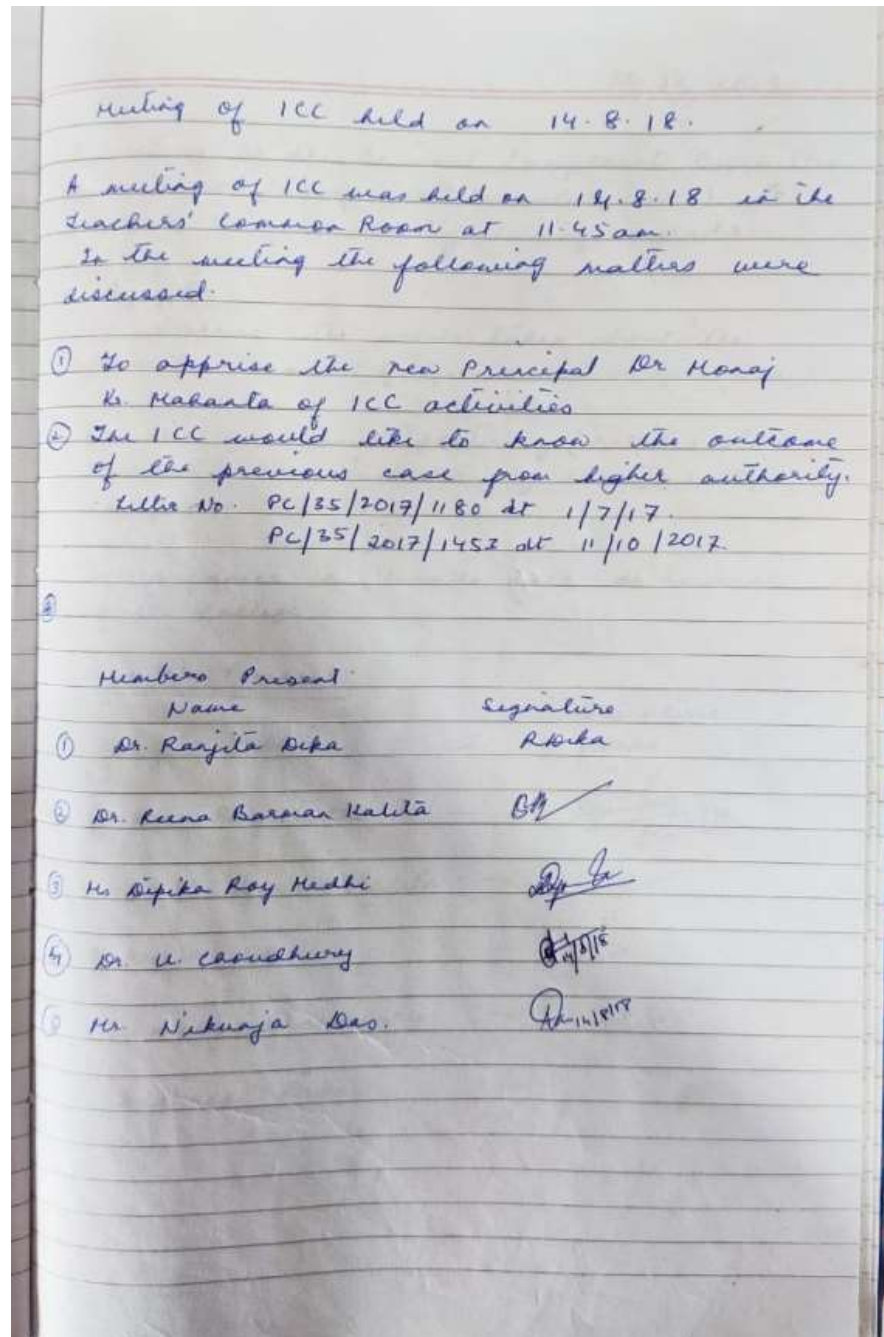 Meeting of ICC held on 14.8.18.
A meeting of ICC was held on 14.8.18 in the
Teachers' Common Room at 11.45am.
In the meeting the following matters were
discussed.
① To apprise the new Principal Dr Manoj
Kr. Mahanta of ICC activities
② The ICC would like to know the outcome
of the previous case from higher authority.
Letter No. PC/35/2017/1180 dt 1/7/17.
PC/35/2017/1453 dt 11/10/2017.
Members Present
Name Signature
① Dr. Ranjita Deka RDeka
② Dr. Reena Barman Kalita
③ Ms Dipika Roy Medhi
④ Dr. U. Choudhury 14/8/18
Mr. Nikunja Das. 14/8/18